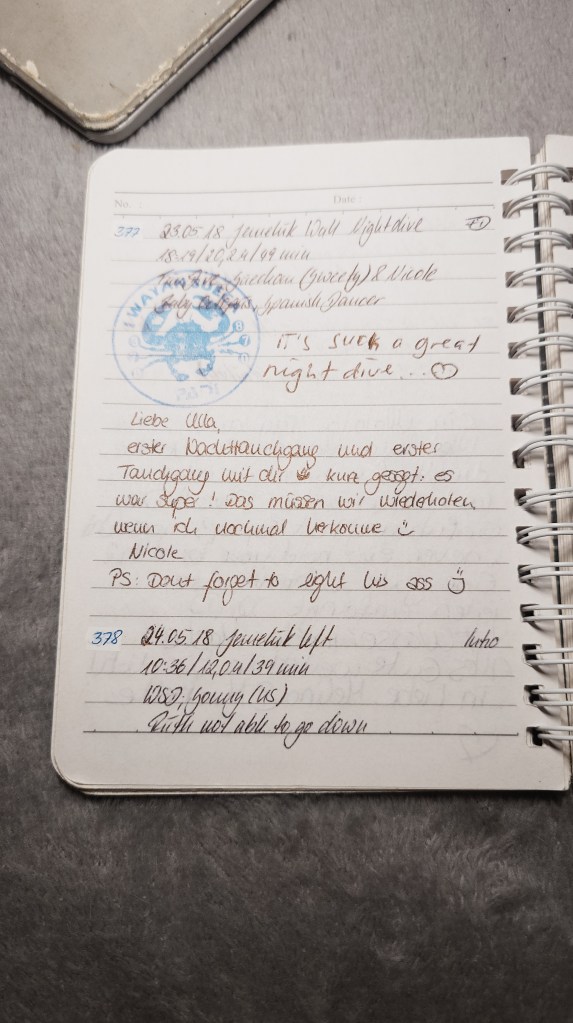 No. : Date :
377 23.05.18 Jemeluk Wall Nightdive
18:19/20,2m/49 min
(Gweely) & Nicole
Spanish Dancer
IT'S SUCH a great
night dive...
Liebe Ulla,
erster Nachttauchgang und erster
Tauchgang mit dir kurz gesagt: es
war super! Das müssen wir wiederholen,
wenn ich nochmal herkomme
Nicole
PS: Dont forget to light his ass
378 24.05.18 Jemeluk left Intro
10:36/12,0m/39 min
WSD, (US)
Ruth not able to go down